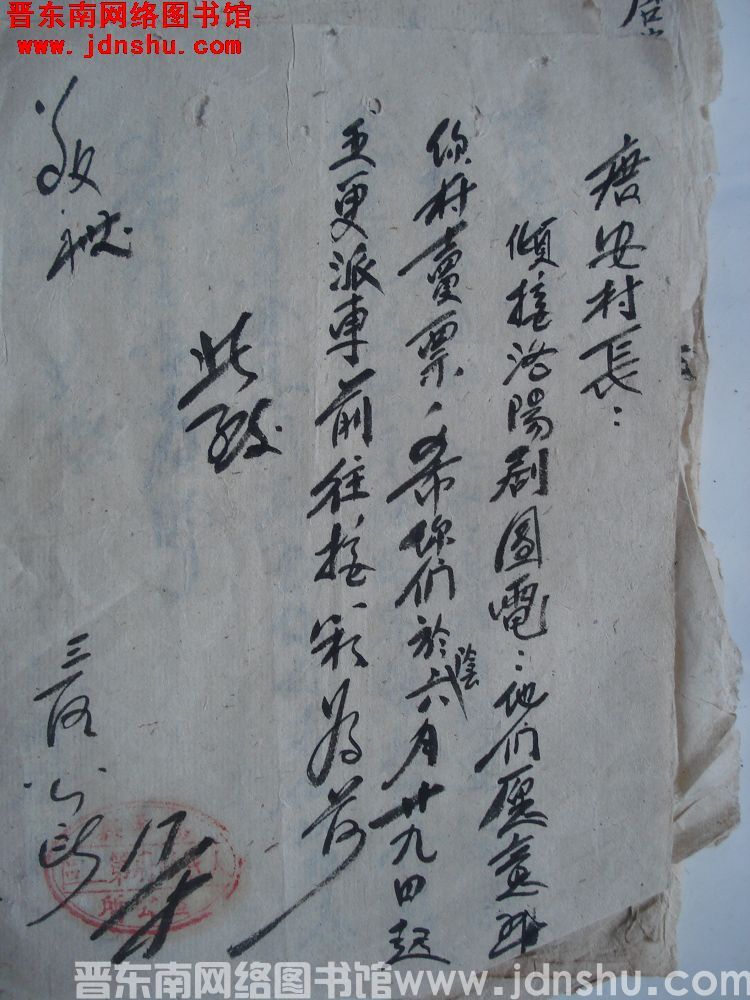 晋东南网络图书馆
www.jdnshu.com
唐安村長：
頃接洛陽剧团電：他们愿意在
你村賣票，希你们於陰六月廿九日起
五更派車前往接
為荷
此致
敬礼
三区公所
晋东南网络图书馆www.jdnshu.com